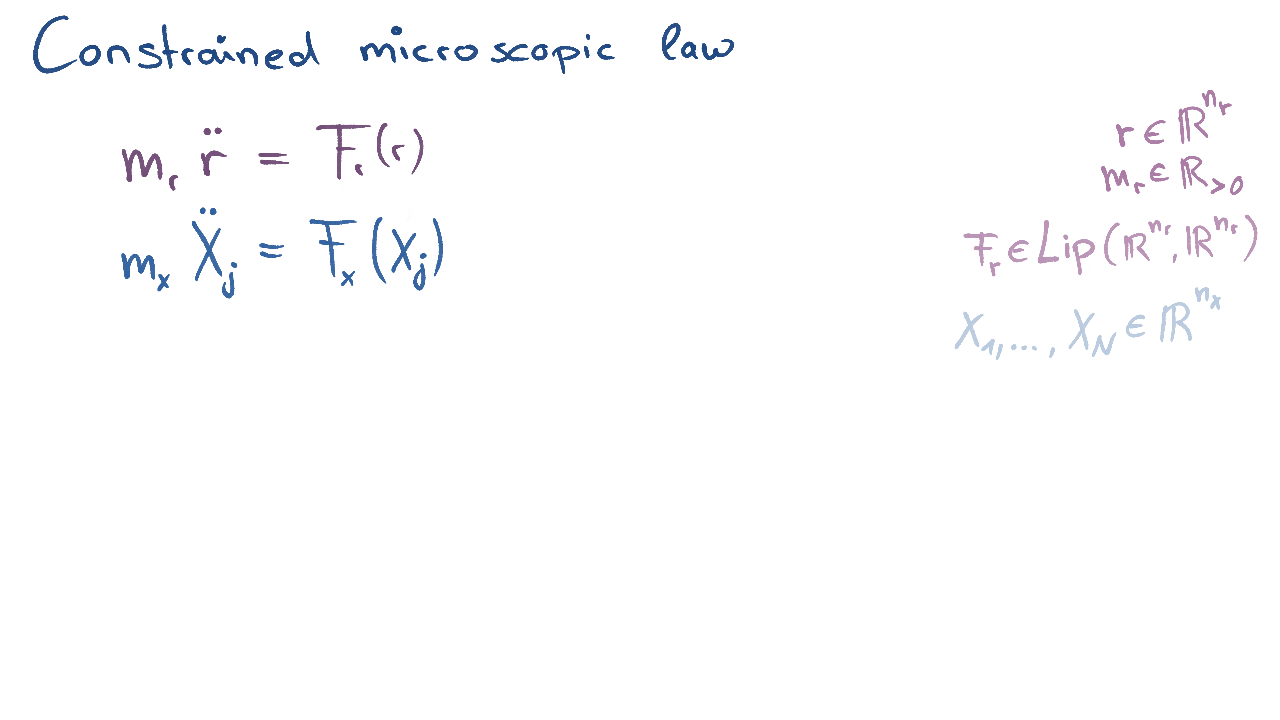 Constrained microscopic law
mᵣ r̈ = Fᵣ(r)
mₓ Ẍⱼ = Fₓ(Xⱼ)
r ∈ ℝⁿʳ
mᵣ ∈ ℝ>0
Fᵣ ∈ Lip(ℝⁿʳ, ℝⁿʳ)
X₁, ..., X_N ∈ ℝⁿˣ